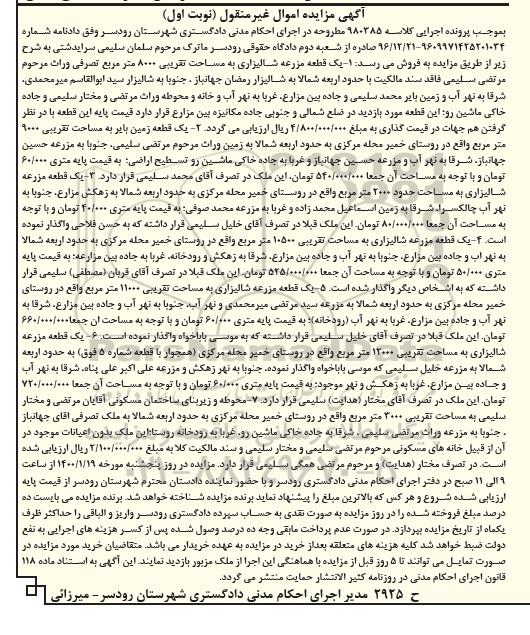 آگهی مزایده اموال غیرمنقول (نوبت اول)
بموجب پرونده اجرایی کلاسه ۹۸۰۳۸۵ مطروحه در اجرای احکام مدنی دادگستری شهرستان رودسر وفق دادنامه شماره
۹۶۰۹۹۷۱۴۲۵۲۰۱۰۳۴-۹۶/۱۲/۲۱ صادره از شعبه دوم دادگاه حقوقی رودسر ماترک مرحوم سلمان سلیمی سرایدشتی به شرح
زیر از طریق مزایده به فروش می رسد: ۱-یک قطعه مزرعه شالیزاری به مساحت تقریبی ۸۰۰۰ متر مربع تصرفی وراث مرحوم
مرتضی سلیمی فاقد سند مالکیت با حدود اربعه شمالا به شالیزار رمضان جهانباز , جنوبا به شالیزار سید ابوالقاسم میرمحمدی,
شرقا به نهر آب و زمین بایر محمد سلیمی و جاده بین مزارع, غربا به نهر آب و خانه و محوطه وراث مرتضی و مختار سلیمی و جاده
خاکی ماشین رو: این قطعه مورد بازدید در ضلع شمالی و جنوبی جاده مکانیزه بین مزارع قرار دارد قیمت پایه این قطعه با در نظر
گرفتن هم جهات در قیمت گذاری به مبلغ ۴/۸۰۰/۰۰۰/۰۰۰ ریال ارزیابی می گردد. ۲- یک قطعه زمین بایر به مساحت تقریبی ۹۰۰۰
متر مربع واقع در روستای خمیر محله مرکزی به حدود اربعه شمالا به زمین وراث مرحوم مرتضی سلیمی, جنوبا به مزرعه حسین
جهانباز, شرقا به نهر آب و مزرعه حسین جهانباز و غربا به جاده خاکی ماشین رو تسطیح اراضی: به قیمت پایه متری ۶۰/۰۰۰
تومان و با توجه به مساحت آن جمعا ۵۴۰/۰۰۰/۰۰۰ تومان, این ملک در تصرف آقای محمد سلیمی قرار دارد. ۳-یک قطعه مزرعه
شالیزاری به مساحت حدود ۲۰۰۰ متر مربع واقع در روستای خمیر محله مرکزی به حدود اربعه شمالا به زهکش مزارع, جنوبا به
نهر آب چالکسرا,شرقا به زمین اسماعیل محمد زاده و غربا به مزرعه محمد صوفی: به قیمت پایه متری ۴۰/۰۰۰ تومان و با توجه
به مساحت آن جمعا ۸۰/۰۰۰/۰۰۰ تومان. این ملک قبلا در تصرف آقای خلیل سلیمی قرار داشته که به حسن فلاحی واگذار نموده
است. ۴-یک قطعه مزرعه شالیزاری به مساحت تقریبی ۱۰۵۰۰ متر مربع واقع در روستای خمیر محله مرکزی به حدود اربعه شمالا
به نهر آب و جاده بین مزارع, جنوبا به نهر آب و جاده بین مزارع, شرقا به زهکش و رودخانه, غربا به جاده بین مزارع: به قیمت پایه
متری ۵۰/۰۰۰ تومان و با توجه به مساحت آن جمعا ۵۲۵/۰۰۰/۰۰۰ تومان, این ملک قبلا در تصرف آقای قربان (مصطفی) سلیمی قرار
داشته که به اشخاص دیگر واگذار شده است. ۵-یک قطعه مزرعه شالیزاری به مساحت تقریبی ۱۱۰۰۰ متر مربع واقع در روستای
خمیر محله مرکزی به حدود اربعه شمالا به مزرعه سید مرتضی میرمحمدی و نهر آب, جنوبا به نهر آب و جاده بین مزارع, شرقا به
نهر آب و جاده بین مزارع, غربا به نهر آب (رودخانه): به قیمت پایه متری ۶۰/۰۰۰ تومان و با توجه به مساحت آن جمعا ۶۶۰/۰۰۰/۰۰۰
تومان. این ملک قبلا در تصرف آقای خلیل سلیمی قرار داشته که به موسی باباخواه واگذار نموده است. ۶-یک قطعه مزرعه
شالیزاری به مساحت تقریبی ۱۲۰۰۰ متر مربع واقع در روستای خمیر محله مرکزی (همجوار با قطعه شماره ۵ فوق) به حدود اربعه
شمالا به مزرعه خلیل سلیمی که موسی باباخواه واگذار نموده, جنوبا به نهر زهکش و مزرعه علی اکبر علی پناه, شرقا به نهر آب
و جاده بین مزارع, غربا به زهکش و نهر موجود: به قیمت پایه متری ۶۰/۰۰۰ تومان و با توجه به مساحت آن جمعا ۷۲۰/۰۰۰/۰۰۰
تومان. این ملک در تصرف آقای مختار (هدایت) سلیمی قرار دارد. ۷-محوطه و زیربنای ساختمان مسکونی آقایان مرتضی و مختار
سلیمی به مساحت تقریبی ۳۰۰۰ متر مربع واقع در روستای خمیر محله مرکزی به حدود اربعه شمالا به ملک تصرفی آقای جهانباز
, جنوبا به مزرعه وراث مرتضی سلیمی , شرقا به جاده خاکی ماشین رو, غربا به رودخانه روستا:این ملک بدون اعیانات موجود در
آن از قبیل خانه های مسکونی مرحوم مرتضی سلیمی و مختار سلیمی و سند مالکیت کلا به مبلغ ۲/۱۰۰/۰۰۰/۰۰۰ ریال ارزیابی شده
است. در تصرف مختار (هدایت) و مرحوم مرتضی همگی سلیمی قرار دارد. مزایده در روز پنجشنبه مورخه ۱۴۰۰/۱/۱۹ از ساعت
۹ الی ۱۱ صبح در دفتر اجرای احکام مدنی دادگستری رودسر و با حضور نماینده دادستان محترم شهرستان رودسر از قیمت پایه
ارزیابی شده شروع و هر کس که بالاترین مبلغ را پیشنهاد نماید برنده مزایده شناخته خواهد شد. برنده مزایده می بایست ده
درصد مبلغ فروخته شده را در روز مزایده به صورت نقدی به حساب سپرده دادگستری رودسر واریز و الباقی را حداکثر ظرف
یکماه از تاریخ مزایده بپردازد. در صورت عدم پرداخت مابقی وجه ده درصد وصول شده پس از کسر هزینه های اجرایی به نفع
دولت ضبط خواهد شد کلیه هزینه های متعلقه بعداز خرید در مزایده به عهده خریدار می باشد. متقاضیان خرید مورد مزایده در
صورت تمایل می توانند تا ۵ روز قبل از مزایده با هماهنگی این اجرا از ملک مزبور بازدید نمایند. این آگهی به استناد ماده ۱۱۸
قانون اجرای احکام مدنی در روزنامه کثیر الانتشار حمایت منتشر می گردد.
ح ۲۹۲۵ مدیر اجرای احکام مدنی دادگستری شهرستان رودسر- میرزائی